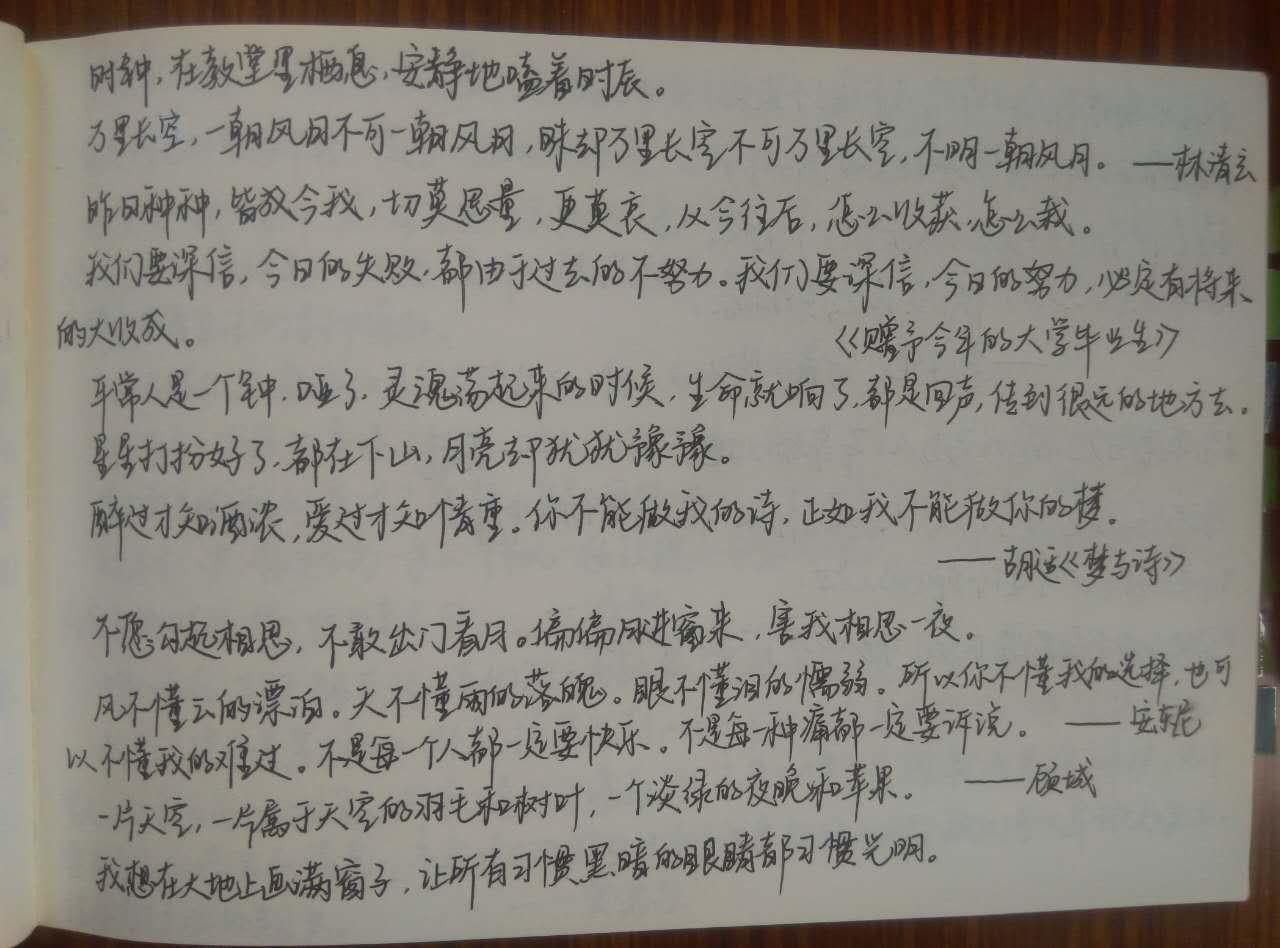 时钟，在教堂里栖息，安静地嗑着时辰。
万里长空，一朝风月不可一朝风月，昧却万里长空不可万里长空，不明一朝风月。 ——林清玄
昨日种种，皆成今我，切莫思量，更莫哀，从今往后，怎么收获，怎么栽。
我们要深信，今日的失败，都由于过去的不努力。我们要深信，今日的努力，必定有将来
的大收成。
《赠予今年的大学毕业生》
平常人是一个钟，哑了，灵魂荡起来的时候，生命就响了，都是回声，传到很远的地方去。
星星打扮好了，都在下山，月亮却犹犹豫豫。
醉过才知酒浓，爱过才知情重。你不能做我的诗，正如我不能做你的梦。
——胡适《梦与诗》
不愿勾起相思，不敢出门看月。偏偏月进窗来，害我相思一夜。
风不懂云的漂泊。天不懂雨的落魄。眼不懂泪的懦弱。所以你不懂我的选择，也可
以不懂我的难过。不是每一个人都一定要快乐。不是每一种痛都一定要诉说。 ——安东尼
一片天空，一片属于天空的羽毛和树叶，一个淡绿的夜晚和苹果。 ——顾城
我想在大地上画满窗子，让所有习惯黑暗的眼睛都习惯光明。